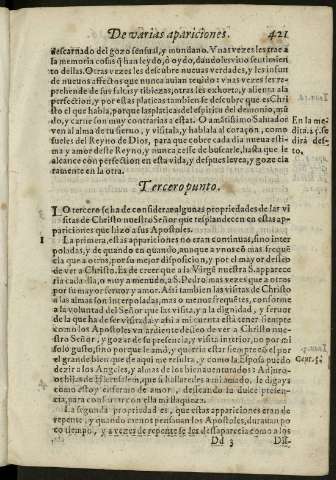 De varias apariciones. 421
descarnado del gozo sensual, y mundano. Vnas vezes les trae a
la memoria cosas q̃ han leydo, ò oydo, dandoles viuo sentimiento
dellas. Otras vezes les descubre nueuas verdades, y les
de nueuos afectos que nunca auian tenido: vnas vezes les re-
prehende de sus faltas y tibiezas, otras les exhorta, y alienta a la
perfection, y por estas platicas tambien se descubre que es Chris
to el que habla, porque las platicas del espiritu del demonio, mũ
do, y carne son muy contrarias a estas. O amãtisimo Saluador
ven al alma de tu sieruo, y visitala, y hablala al coraçon, como
sueles del Reyno de Dios, para que cobre cada dia nueua esti-
ma y amor deste Reyno, y nunca cesse de buscarle, hasta que le
alcance con perfection en esta vida, y despues le vea, y goze cla
ramente en la otra.
En la me
dita.25. se
dirà des-
to.
Tercero punto.
LO tercero se ha de considerar algunas propriedades de las vi
sitas de Christo nuestro Señor que resplandecen en estas apa-
riciones que hizo a sus Apostoles.
1 La primera, estas apariciones no eran continuas, sino inter
poladas, y de quando en quando, aunque a vnos era mas freque
cia que a otros, por su mejor disposicion, y por el mayor desseo
de ver a Christo. Es de creer que a la Virgẽ nuestra S. aparece
ria cada dia, o muy a menudo, a S. Pedro mas vezes que a otros
por su mayor feruor y amor. Assi tambien las visitas de Christo
a las almas son interpoladas, mas o menos frequẽtes, conforme
a la voluntad del Señor que las visita, y a la dignidad, y feruor
de la que ha de ser visitada: y assi a mi cuenta està tener siempre
como los Apostoles vn ardiente desseo de ver a Christo nue-
stro Señor, y gozar de su presencia, y visita interior, no por mi
solo gusto, sino por que le amo, y querria estar siempre cõ el por
el grande bien que de aqui me resulta, y como la Esposa puedo
dezir a los Angeles, y almas de los bienauenturados: Adjuro-
os hijas de Hierusalem, que si hallaredes a mi amado, le digays
como estoy enfermo de amor, desseando su dulce presencia,
para confortar con ella mi flaqueza.
Cant. 5.
La segunda propriedad es, que estas apariciones eran de
repente, y quando menos pensauan los Apostoles, durauan po
co tiempo, y a vezes de repente se les desaparecia como a los
Dd 3